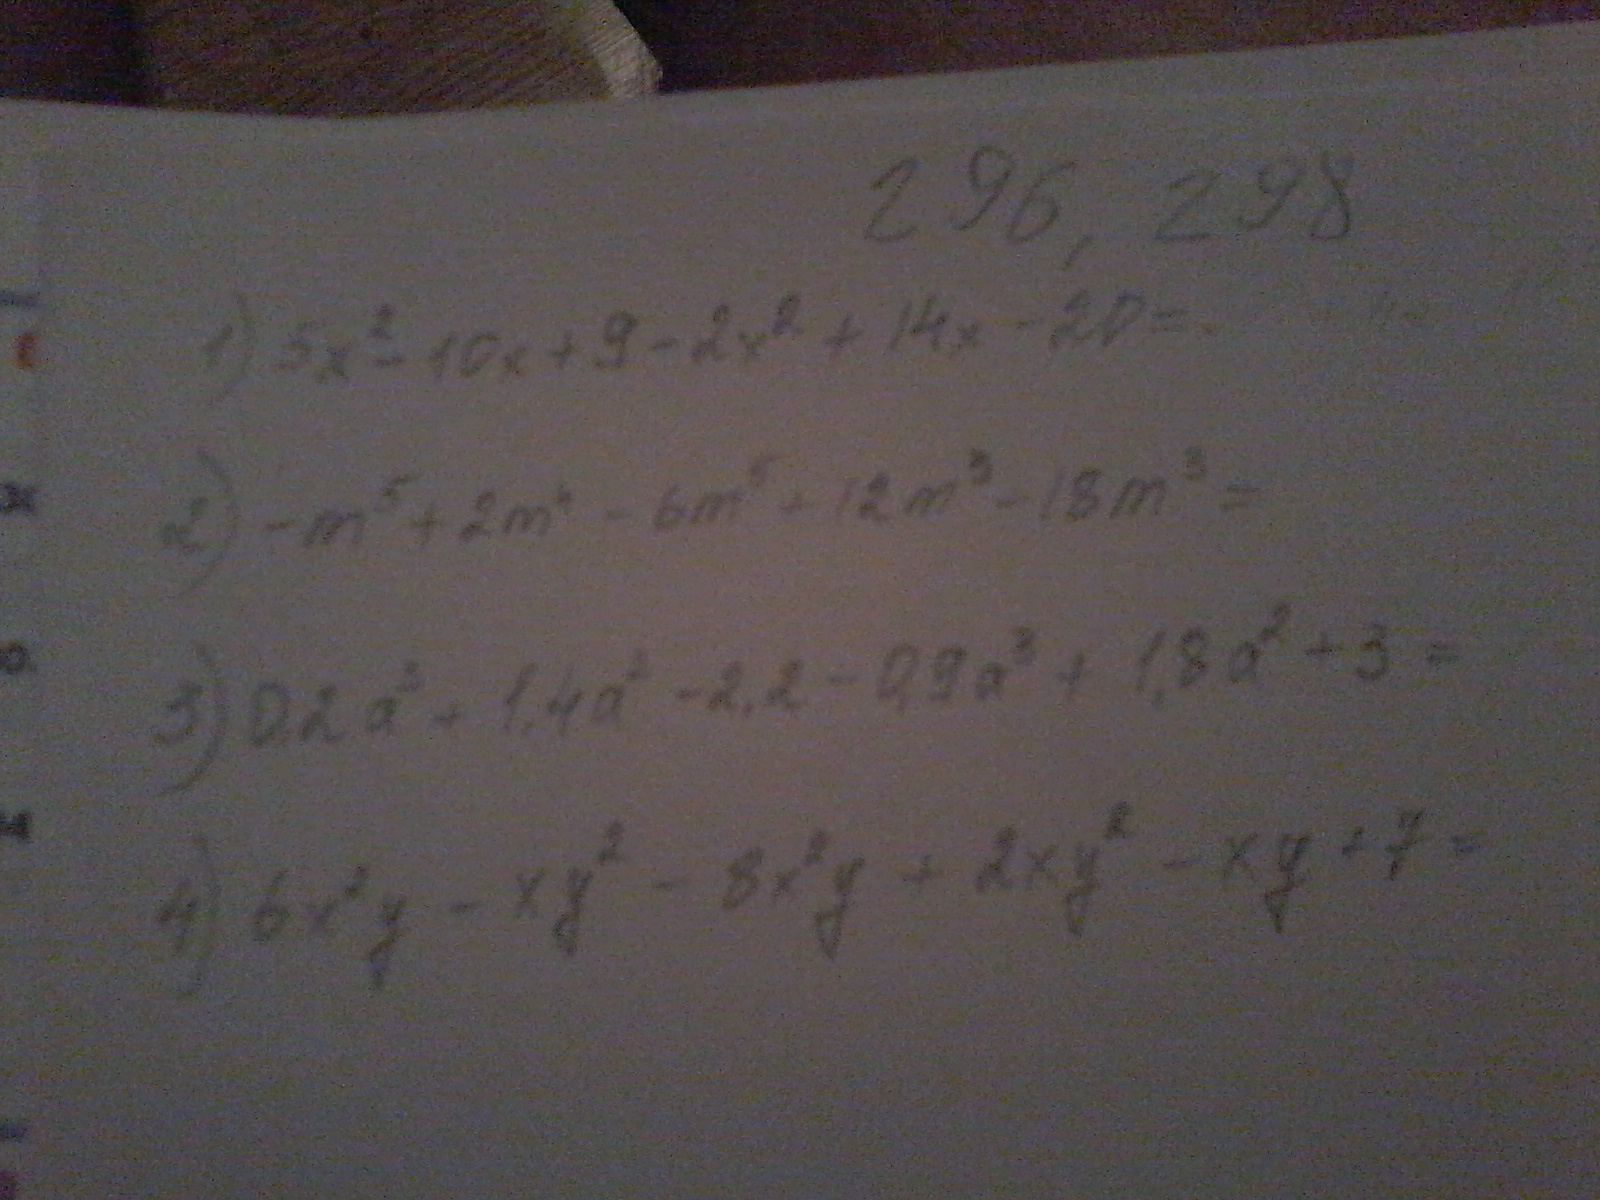 296, 298
1) 5x² - 10x + 9 - 2x² + 14x - 20 =
2) - m⁵ + 2m⁴ - 6m⁵ + 12m³ - 18m³ =
3) 0,2a³ + 1,4a² - 2,2 - 0,9a³ + 1,8a² + 3 =
4) 6x²y - xy² - 8x²y + 2xy² - xy + 7 =